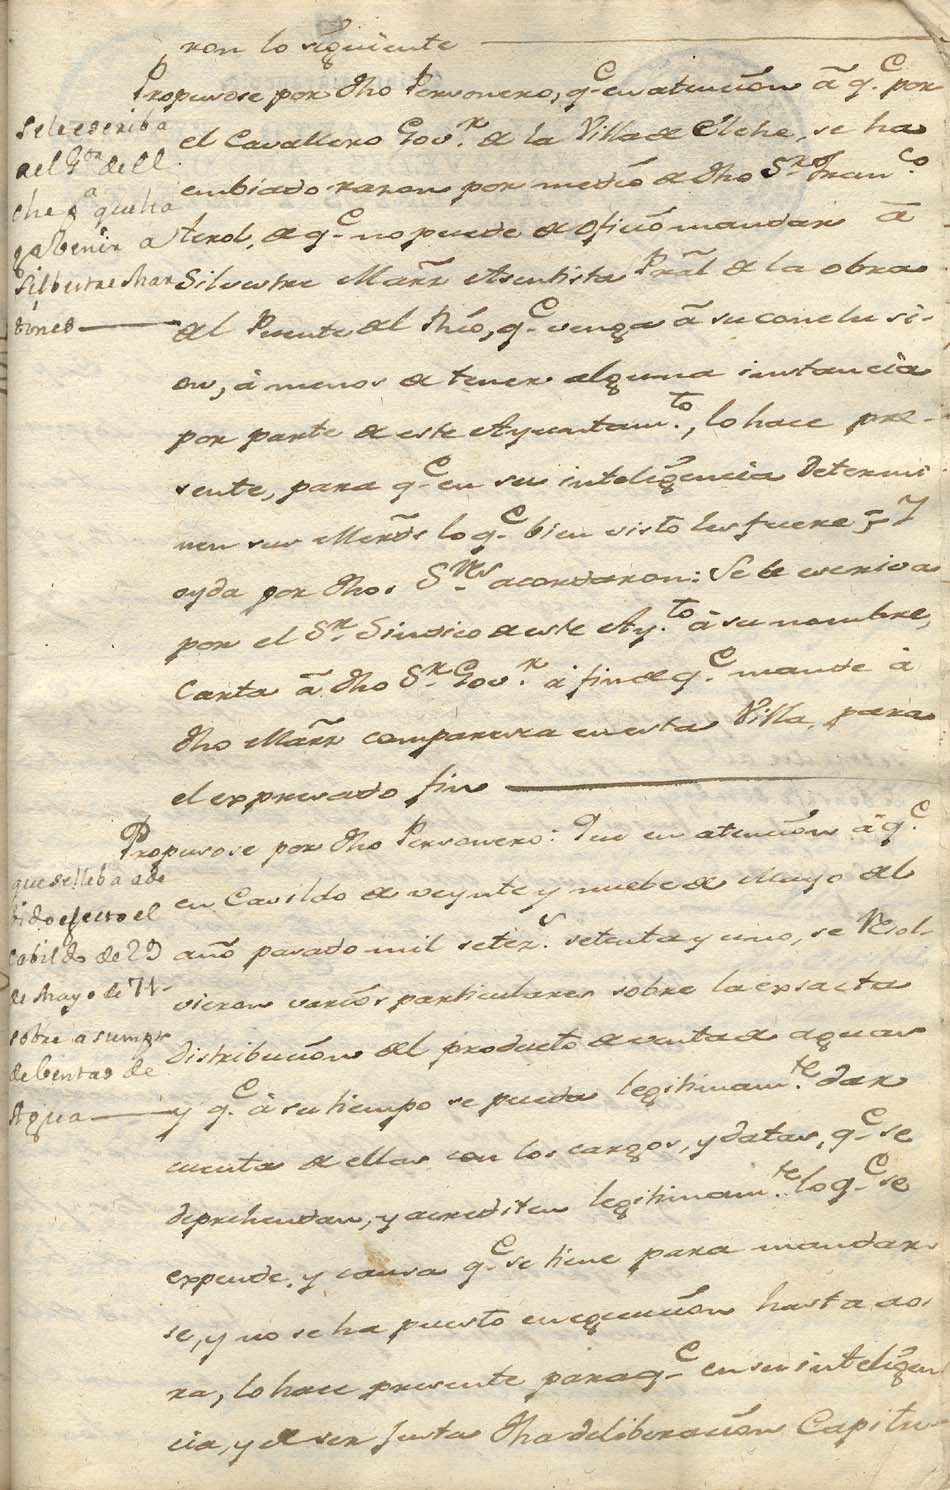 ron lo siguiente
Propusose por dho Personero, q.e en atencion â q.e por
el Cavallero Gov.r de la Villa de Elche, se ha
embiado razon por medio de dho S.r d.n Fran.co
Terol, de q.e no puede de oficio mandar â
Silvestre Marz Asentista Pral de la obra
del Puente del Rio, q.e venga â su conclusi-
on, à menos de tener alguna instancia
por parte de este Ayuntam.to, lo hace pre-
sente, para q.e en su inteligencia determi-
nen sus Merzds lo q.e bien visto les fuere = Y
oyda por dhos S.res acordaron: Se le escriva
por el S.r Sindico de este Ay.to à su nombre,
Carta â dho S.r Gov.r à fin de q.e mande à
dho Marz comparesca en esta Villa, para
el expresado fin
Se le escriba
a el G.or de El
che p.a que ha
ga benir a
Silbestre Mar
tines
Propusose por dho Personero: Que en atencion â q.e
en Cavildo de veynte y nuebe de Mayo del
año pasado mil setez.s setenta y uno, se Resol-
vieron varios particulares sobre la exsacta
distribucion del producto de venta de aguas
y q.e à su tiempo se pueda legitimam.te dar
cuenta de ellas con los cargos, y datas, q.e se
deprehendan, y acrediten legitimam.te lo q.e se
expende, y causa q.e se tiene para mandar-
se, y no se ha puesto en egecucion hasta ao-
ra, lo hace presente para q.e en su inteligen
cia, y de ser justa dha deliberacion Capitu
que se lleba a de
bido efecto el
cabildo de 29
de Mayo de 71-
sobre asumpt
de bentas de
Agua